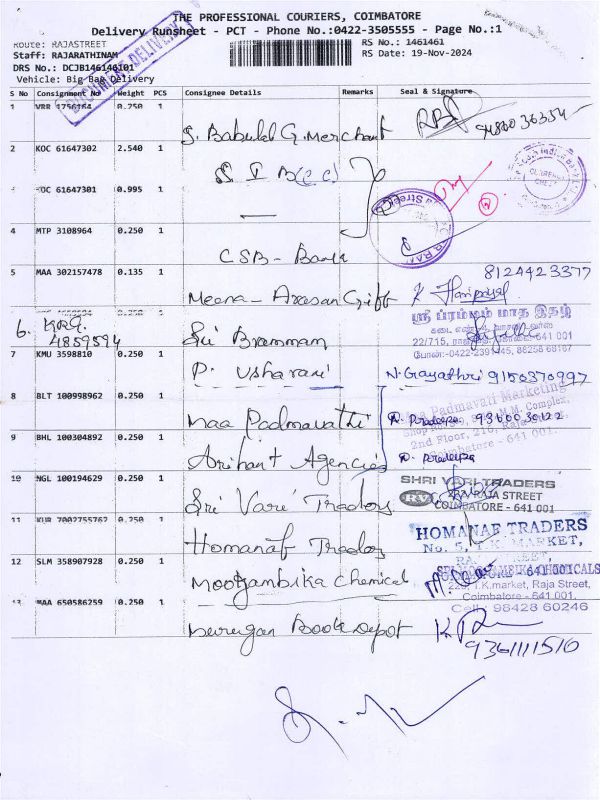 THE PROFESSIONAL COURIERS, COIMBATORE
Delivery Runsheet - PCT - Phone No.:0422-3505555 - Page No.:1
Route: RAJASTREET
Staff: RAJARATHINAM
RS No.: 1461461
DRS No.: DCJB146146101
RS Date: 19-Nov-2024
Vehicle: Big Bag Delivery
DOCUMENT DELIVERY
S No Consignment No Weight PCS Consignee Details Remarks Seal & Signature
1 VRR 1756164 0.250 1
S. Babulal G. Merchant 9486036354
2 KOC 61647302 2.540 1
S I B (C C)
KOC 61647301 0.995 1
4 MTP 3108964 0.250 1
CSB - Bank
5 MAA 302157478 0.135 1
8124423377
Meena - Aresan Gift K Haripriyal
6. KRG. 4859594
Sri Bramman
ஸ்ரீ ப்ரம்மம் மாத இதழ்
22/715, 641 001
போன்:-0422-2391445, 88258 68167
7 KMU 3598810 0.250 1
P. Usharani N. Gayathri 9150370997
8 BLT 100998962 0.250 1
Maa Padmavathi R. Pradeepa 9360030122
Maa Padmavati Marketing
2nd Floor, 210, Raja Street,
Coimbatore - 641 001.
9 BHL 100304892 0.250 1
Arihant Agencies R. Pradeepa
10 NGL 100194629 0.250 1
Sri Vari Traders
SHRI VARI TRADERS
RV RAJA STREET
COIMBATORE - 641 001
11 KUR 7002755762 0.250 1
Homanaf Traders
HOMANAF TRADERS
No. 5, T.K. MARKET,
12 SLM 358907928 0.250 1
Mookambika Chemical
SRI MOOKAMBIKA CHEMICALS
T.K.market, Raja Street,
Coimbatore - 641 001.
Cell : 98428 60246
13 MAA 650586259 0.250 1
Murugan Book Depot
9361111510